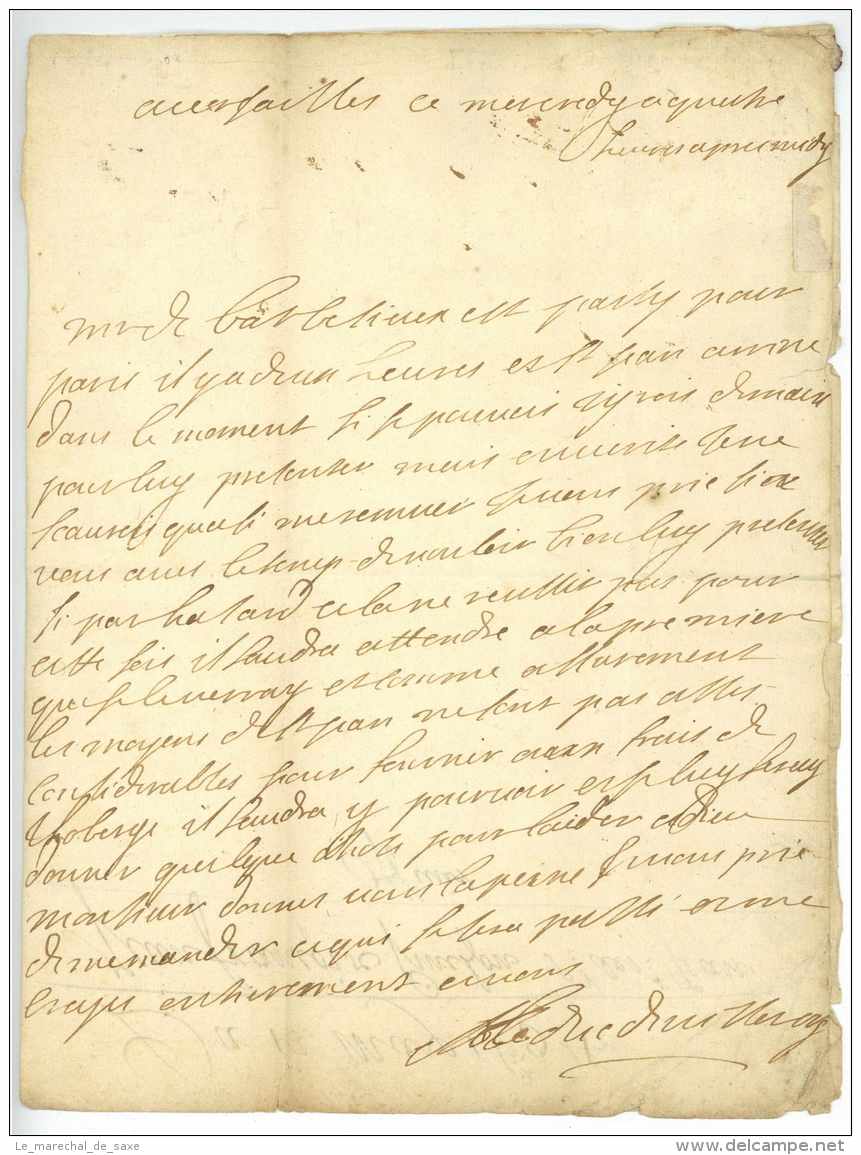 a versailles ce mercredy a quatre
heures apres midy
mr de barbesieux est party pour
paris il y a deux heures et st jan arrive
dans le moment si je pouvois j'yrois demain
pour luy presenter mais en verité je ne
sauroy quasi me remuer je vous prie si
vous aves le temps de vouloir bien luy presenter
si par hasard cela ne reussit pas pour
cette fois il faudra attendre a la premiere
que je le verray et comme assurement
les moyens de st jan ne sont pas asses
considerables pour fournir aux frais de
l'oberge il faudra y pourvoir et je luy feray
donner quelque chose pour l'aider adieu
monsieur donnes vous la peine je vous prie
de me mander ce qui se sera passé et me
croyes entierement a vous
le duc de villeroy
Le_marechal_de_saxe
www.delcampe.net